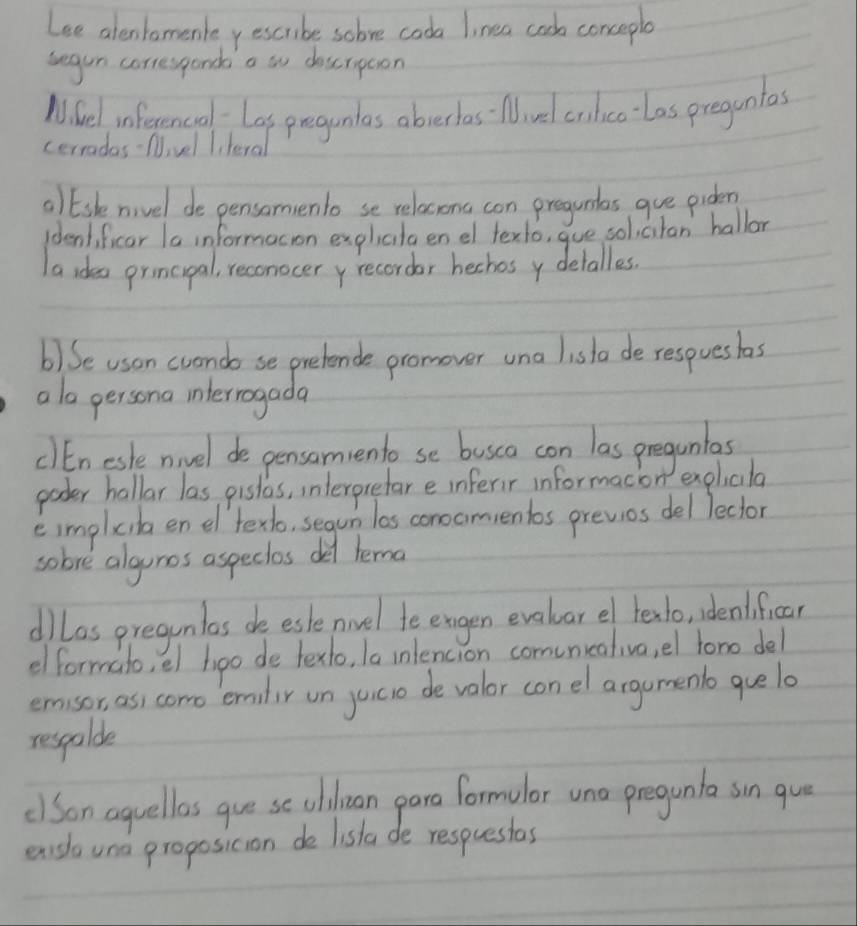 Lee atentamente y escribe sobre cada linea cada concepto
segun corresponda a su descripcion
Nivel inferencial - Las preguntas abiertas - Nivel critico - Las preguntas
cerradas - Nivel literal
a) Este nivel de pensamiento se relaciona con preguntas que piden
identificar la informacion explicita en el texto, que solicitan hallar
la idea principal, reconocer y recordar hechos y detalles.
b) Se usan cuando se pretende promover una lista de respuestas
a la persona interrogada
c) En este nivel de pensamiento se busca con las preguntas
poder hallar las pistas, interpretar e inferir informacion explicita
e implicita en el texto, segun los conocimientos previos del lector
sobre algunos aspectos del tema
d) Las preguntas de este nivel te exigen evaluar el texto, identificar
el formato, el tipo de texto, la intencion comunicativa, el tono del
emisor, asi como emitir un juicio de valor con el argumento que lo
respalde
e) Son aquellas que se utilizan para formular una pregunta sin que
exista una proposicion de lista de respuestas